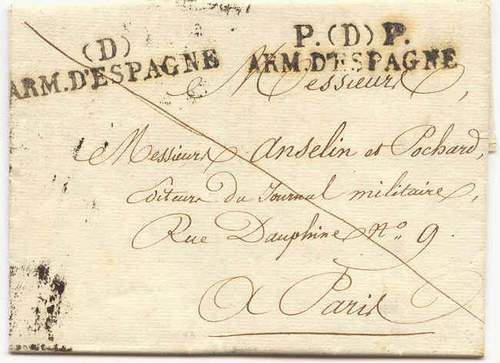 (D)
ARM.D'ESPAGNE
P.(D)P.
ARM.D'ESPAGNE
Messieurs,
Messieurs Anselin et Pochard,
Editeurs du Journal militaire,
Rue Dauphine N.o 9.
A Paris